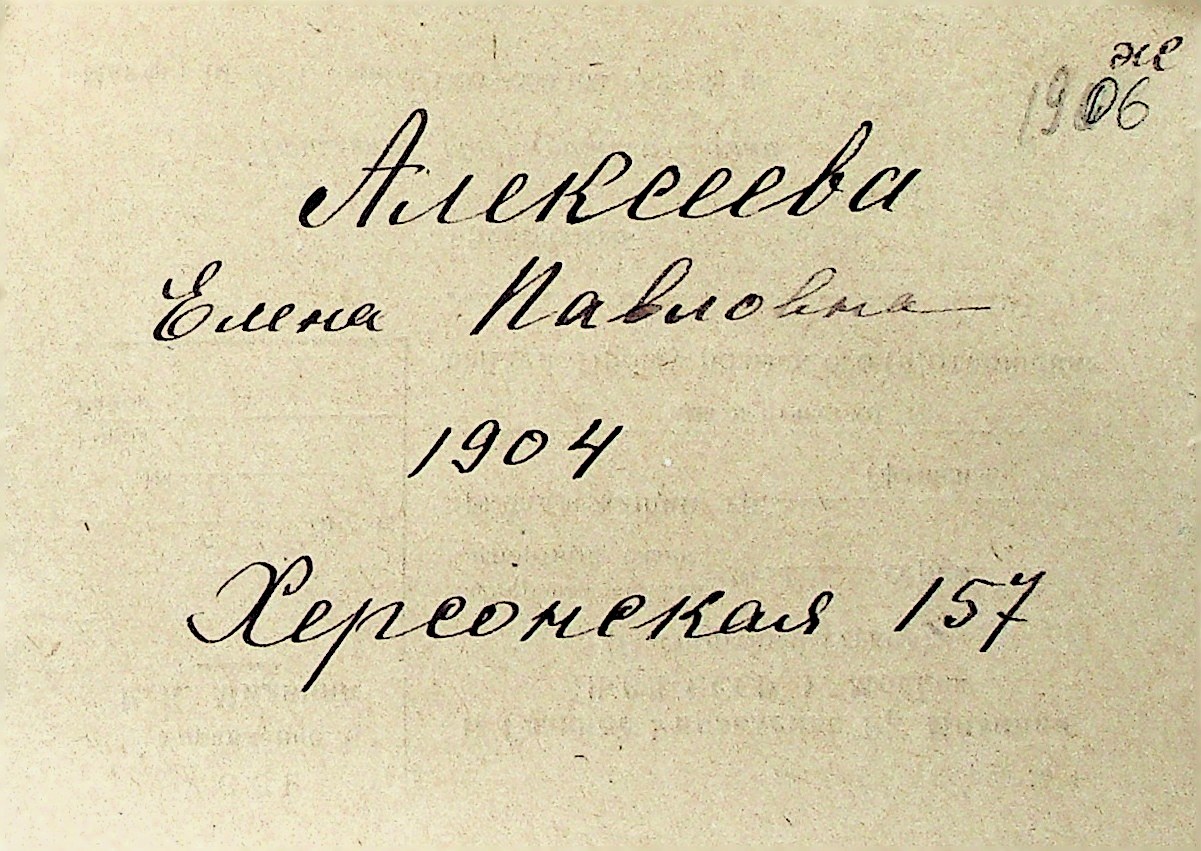 же
1906
Алексеева
Елена Павловна
1904
Херсонская 157